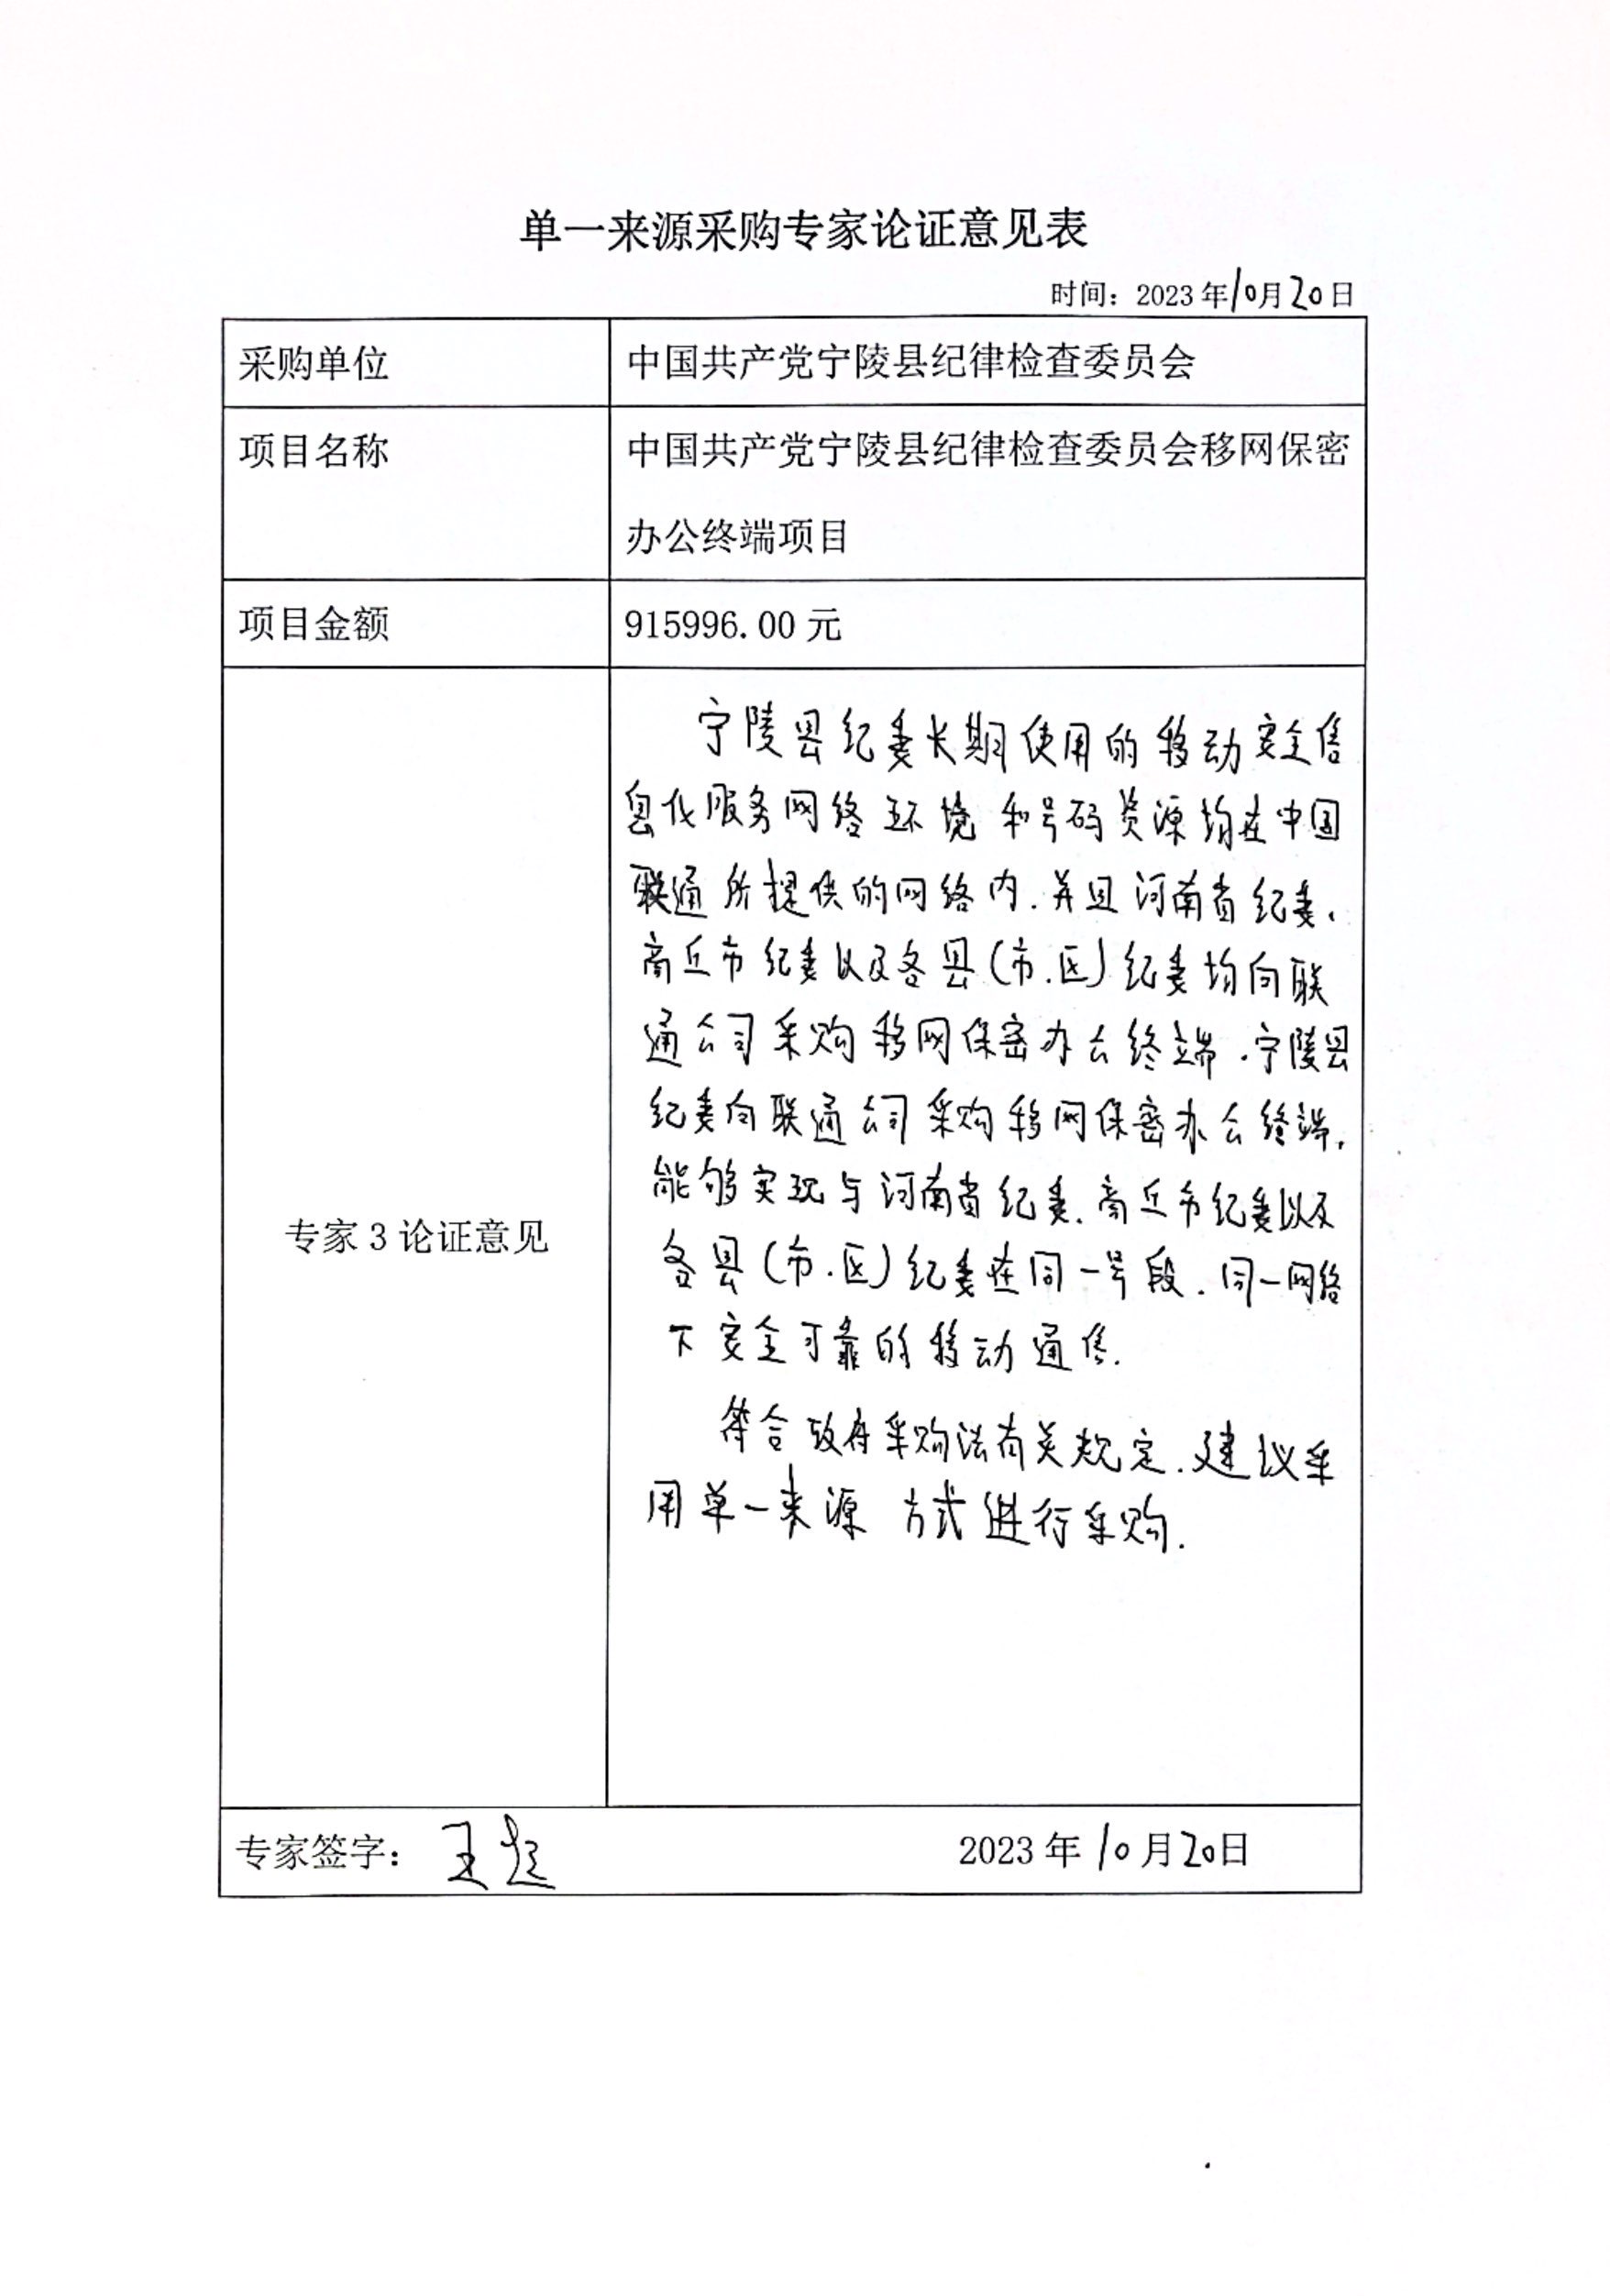 单一来源采购专家论证意见表
时间：2023年10月20日
采购单位
中国共产党宁陵县纪律检查委员会
项目名称
中国共产党宁陵县纪律检查委员会移网保密
办公终端项目
项目金额
915996.00元
专家3论证意见
宁陵县纪委长期使用的移动安全信
息化服务网络环境和号码资源均在中国
联通所提供的网络内.并且河南省纪委、
商丘市纪委以及各县(市.区)纪委均向联
通公司采购移网保密办公终端.宁陵县
纪委向联通公司采购移网保密办公终端,
能够实现与河南省纪委、商丘市纪委以及
各县(市.区)纪委在同一号段.同一网络
下安全可靠的移动通信.
符合政府采购法有关规定.建议采
用单一来源方式进行采购.
专家签字：王超
2023年10月20日